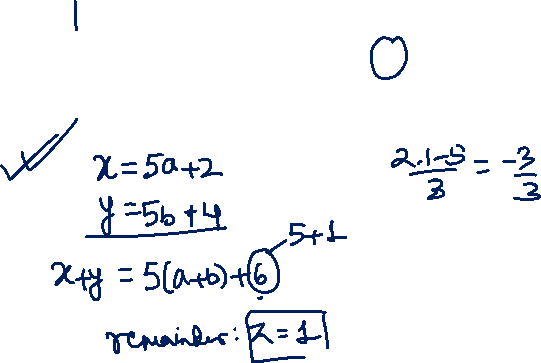 x=5a+2
y=5b+4
x+y = 5(a+b)+6
5+1
remainder: z=1
2.1-5/3 = -3/3